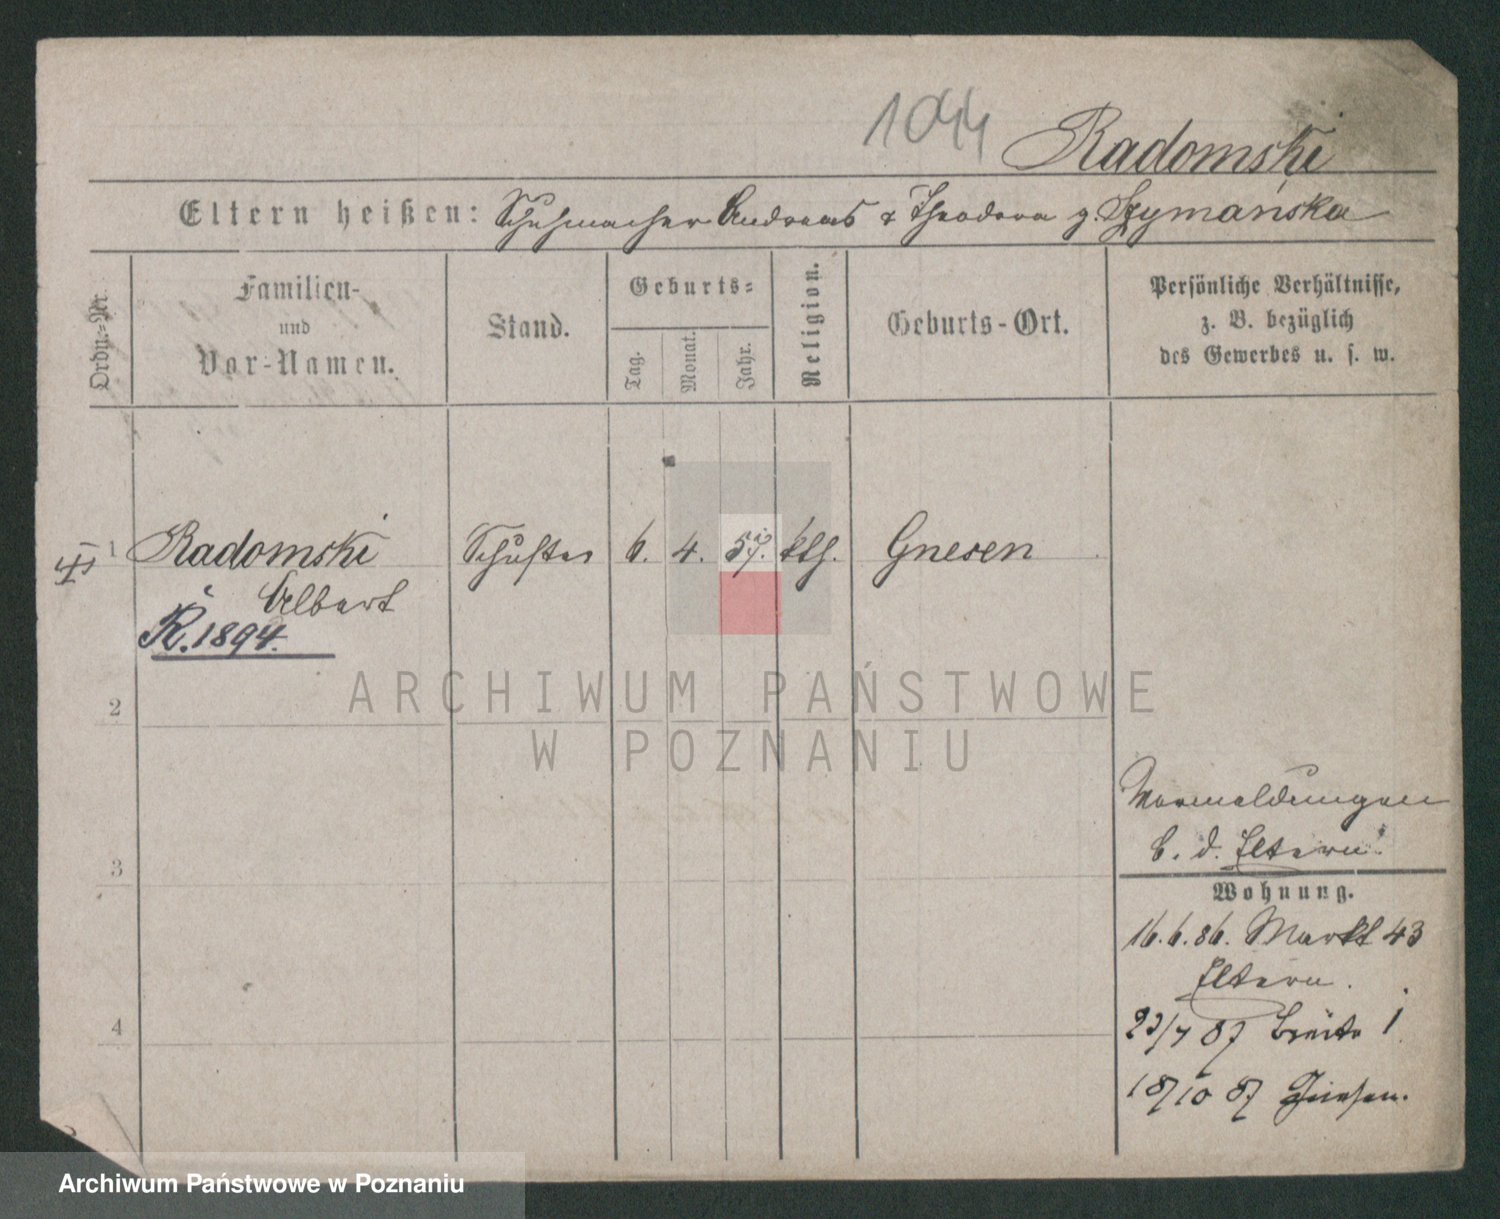 1044
Radomski
Eltern heißen: Schuhmacher Andreas & Theodora g. Szymańska
Ordn.-Nr.
Familien-
und
Vor-Namen.
Stand.
Geburts-
Tag.
Monat.
Jahr.
Religion.
Geburts-Ort.
Persönliche Verhältnisse,
z. B. bezüglich
des Gewerbes u. s. w.
1 Radomski Schuster 6. 4. kth. Gnesen
Albert
R. 1894.
2
ARCHIWUM PAŃSTWOWE
W POZNANIU
b. d. Eltern.
3
Wohnung.
16.6.86. Markt 43
Eltern.
4
/7 87 Breite 1
18/10 87 Gnesen.
Archiwum Państwowe w Poznaniu